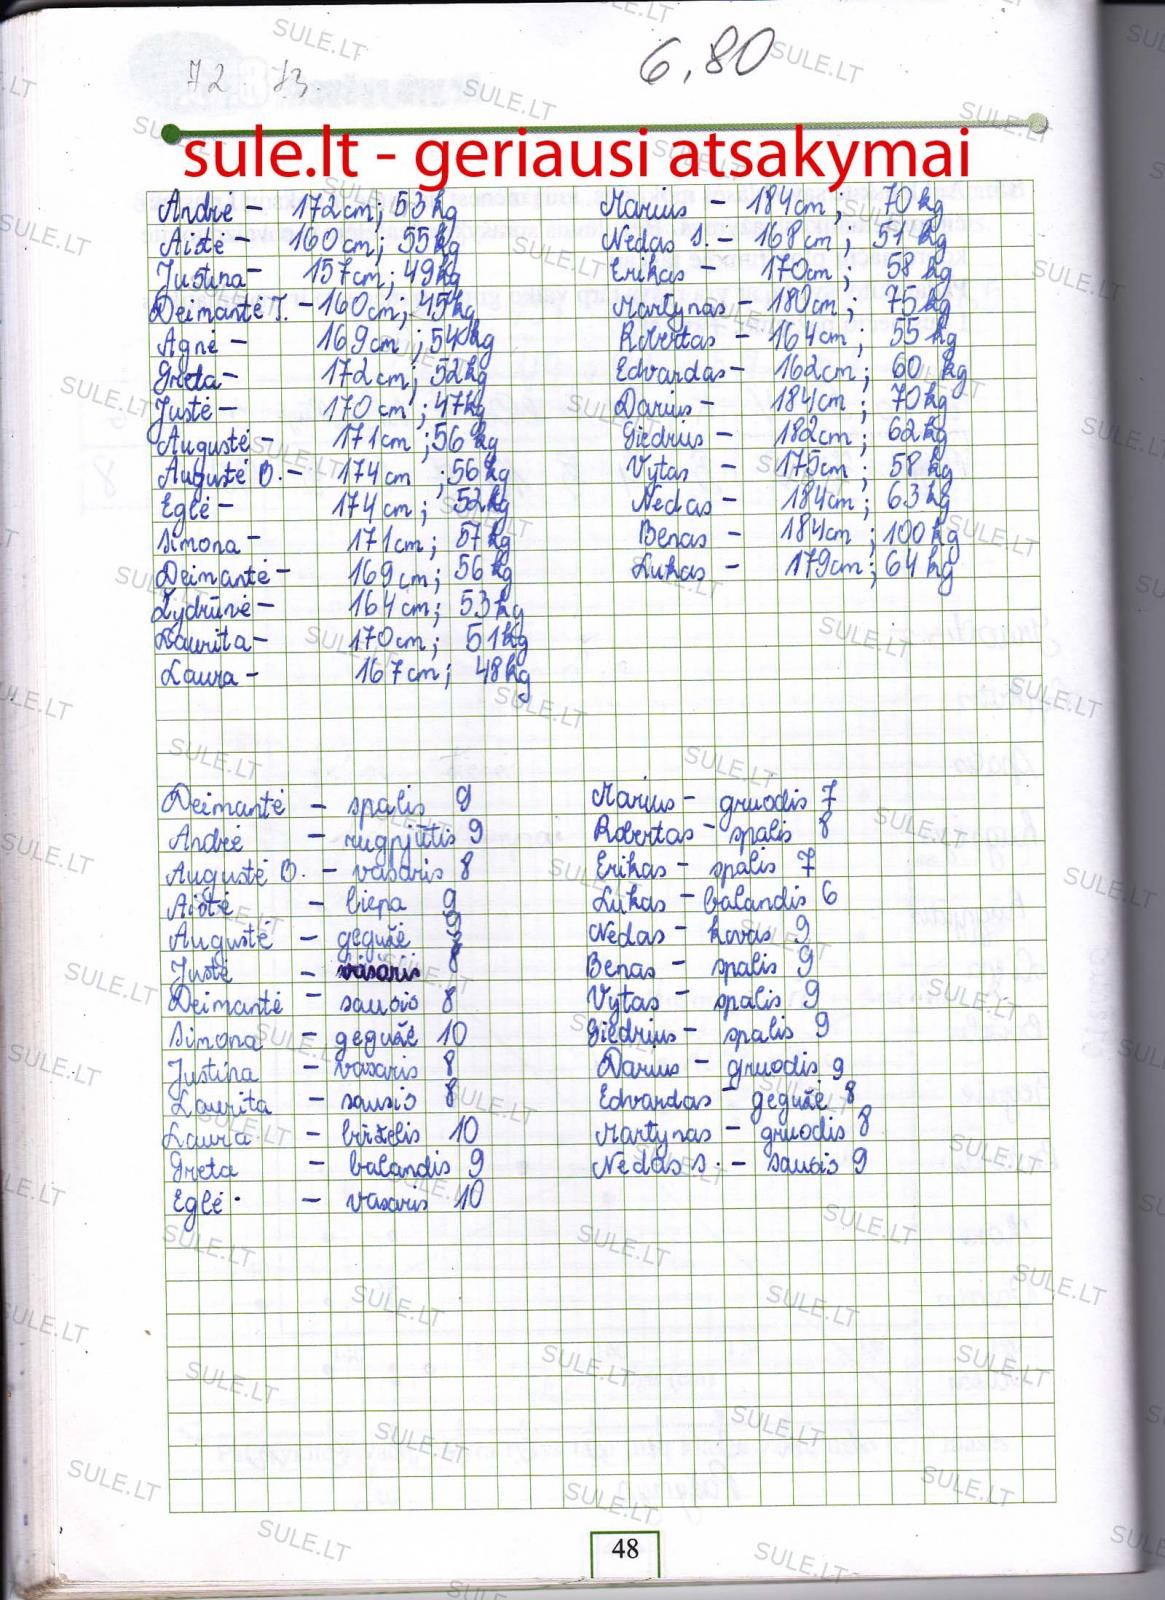 72 73.
6,80
sule.lt - geriausi atsakymai
Andrė - 172cm; 53kg
Aistė - 160cm; 55kg
Justina - 157cm; 49kg
Deimantė J. - 160cm; 45kg
Agnė - 169cm; 54kg
Greta - 172cm; 52kg
Justė - 170cm; 47kg
Augustė - 171cm; 56kg
Augustė B. - 174cm; 56kg
Eglė - 174cm; 52kg
Simona - 171cm; 57kg
Deimantė - 169cm; 56kg
Lydrūnė - 164cm; 53kg
Laurita - 170cm; 51kg
Laura - 167cm; 48kg
Marius - 184cm; 70kg
Nedas S. - 168cm; 51kg
Erikas - 170cm; 58kg
Martynas - 180cm; 75kg
Robertas - 164cm; 55kg
Edvardas - 162cm; 60kg
Darius - 184cm; 70kg
Giedrius - 182cm; 62kg
Vytas - 175cm; 58kg
Nedas - 184cm; 63kg
Benas - 184cm; 100kg
Lukas - 179cm; 64kg
Deimantė - spalis 9
Andrė - rugpjūtis 9
Augustė B. - vasaris 8
Aistė - liepa 9
Augustė - gegužė 9
Justė - vasaris 8
Deimantė - sausis 8
Simona - gegužė 10
Justina - vasaris 8
Laurita - sausis 8
Laura - birželis 10
Greta - balandis 9
Eglė - vasaris 10
Marius - gruodis 7
Robertas - spalis 8
Erikas - spalis 7
Lukas - balandis 6
Nedas - kovas 9
Benas - spalis 9
Vytas - spalis 9
Giedrius - spalis 9
Darius - gruodis 9
Edvardas - gegužė 8
Martynas - gruodis 8
Nedas S. - sausis 9
48